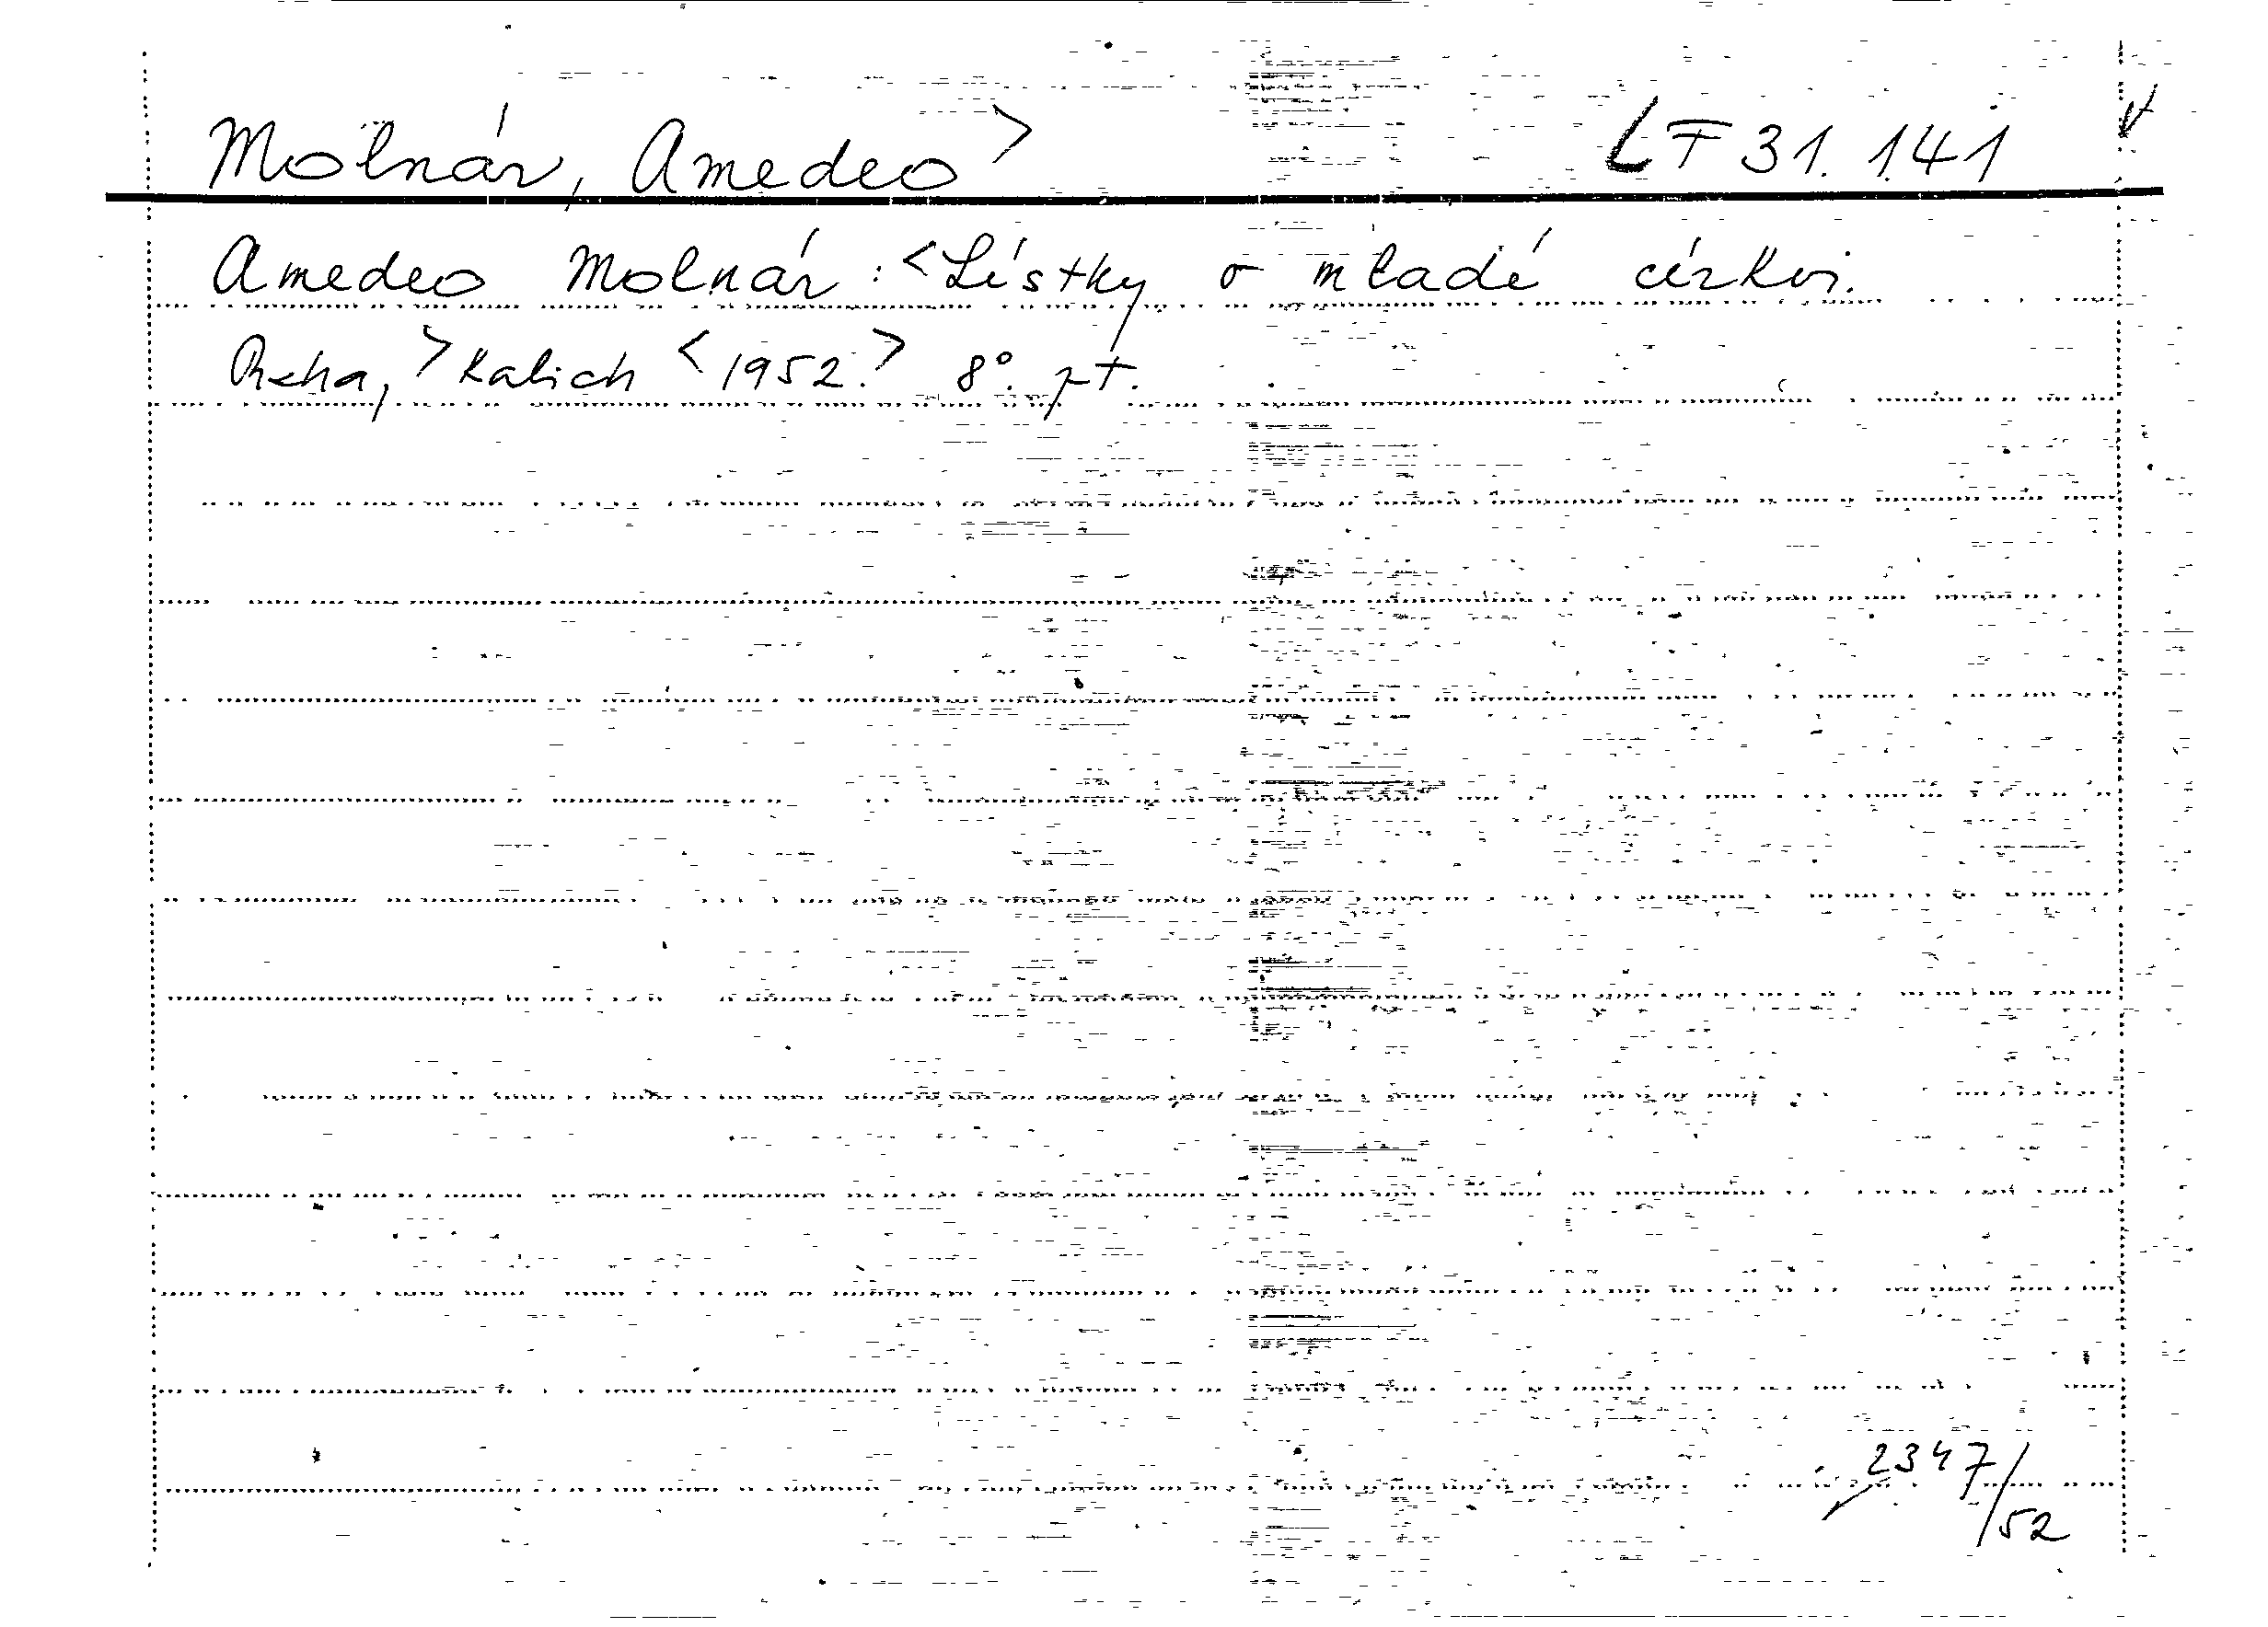 Molnár, Amedeo> LT 31.141
Amedeo Molnár: <Lístky o mladé církvi.
Praha,> Kalich <1952.> 8°.
2347/52